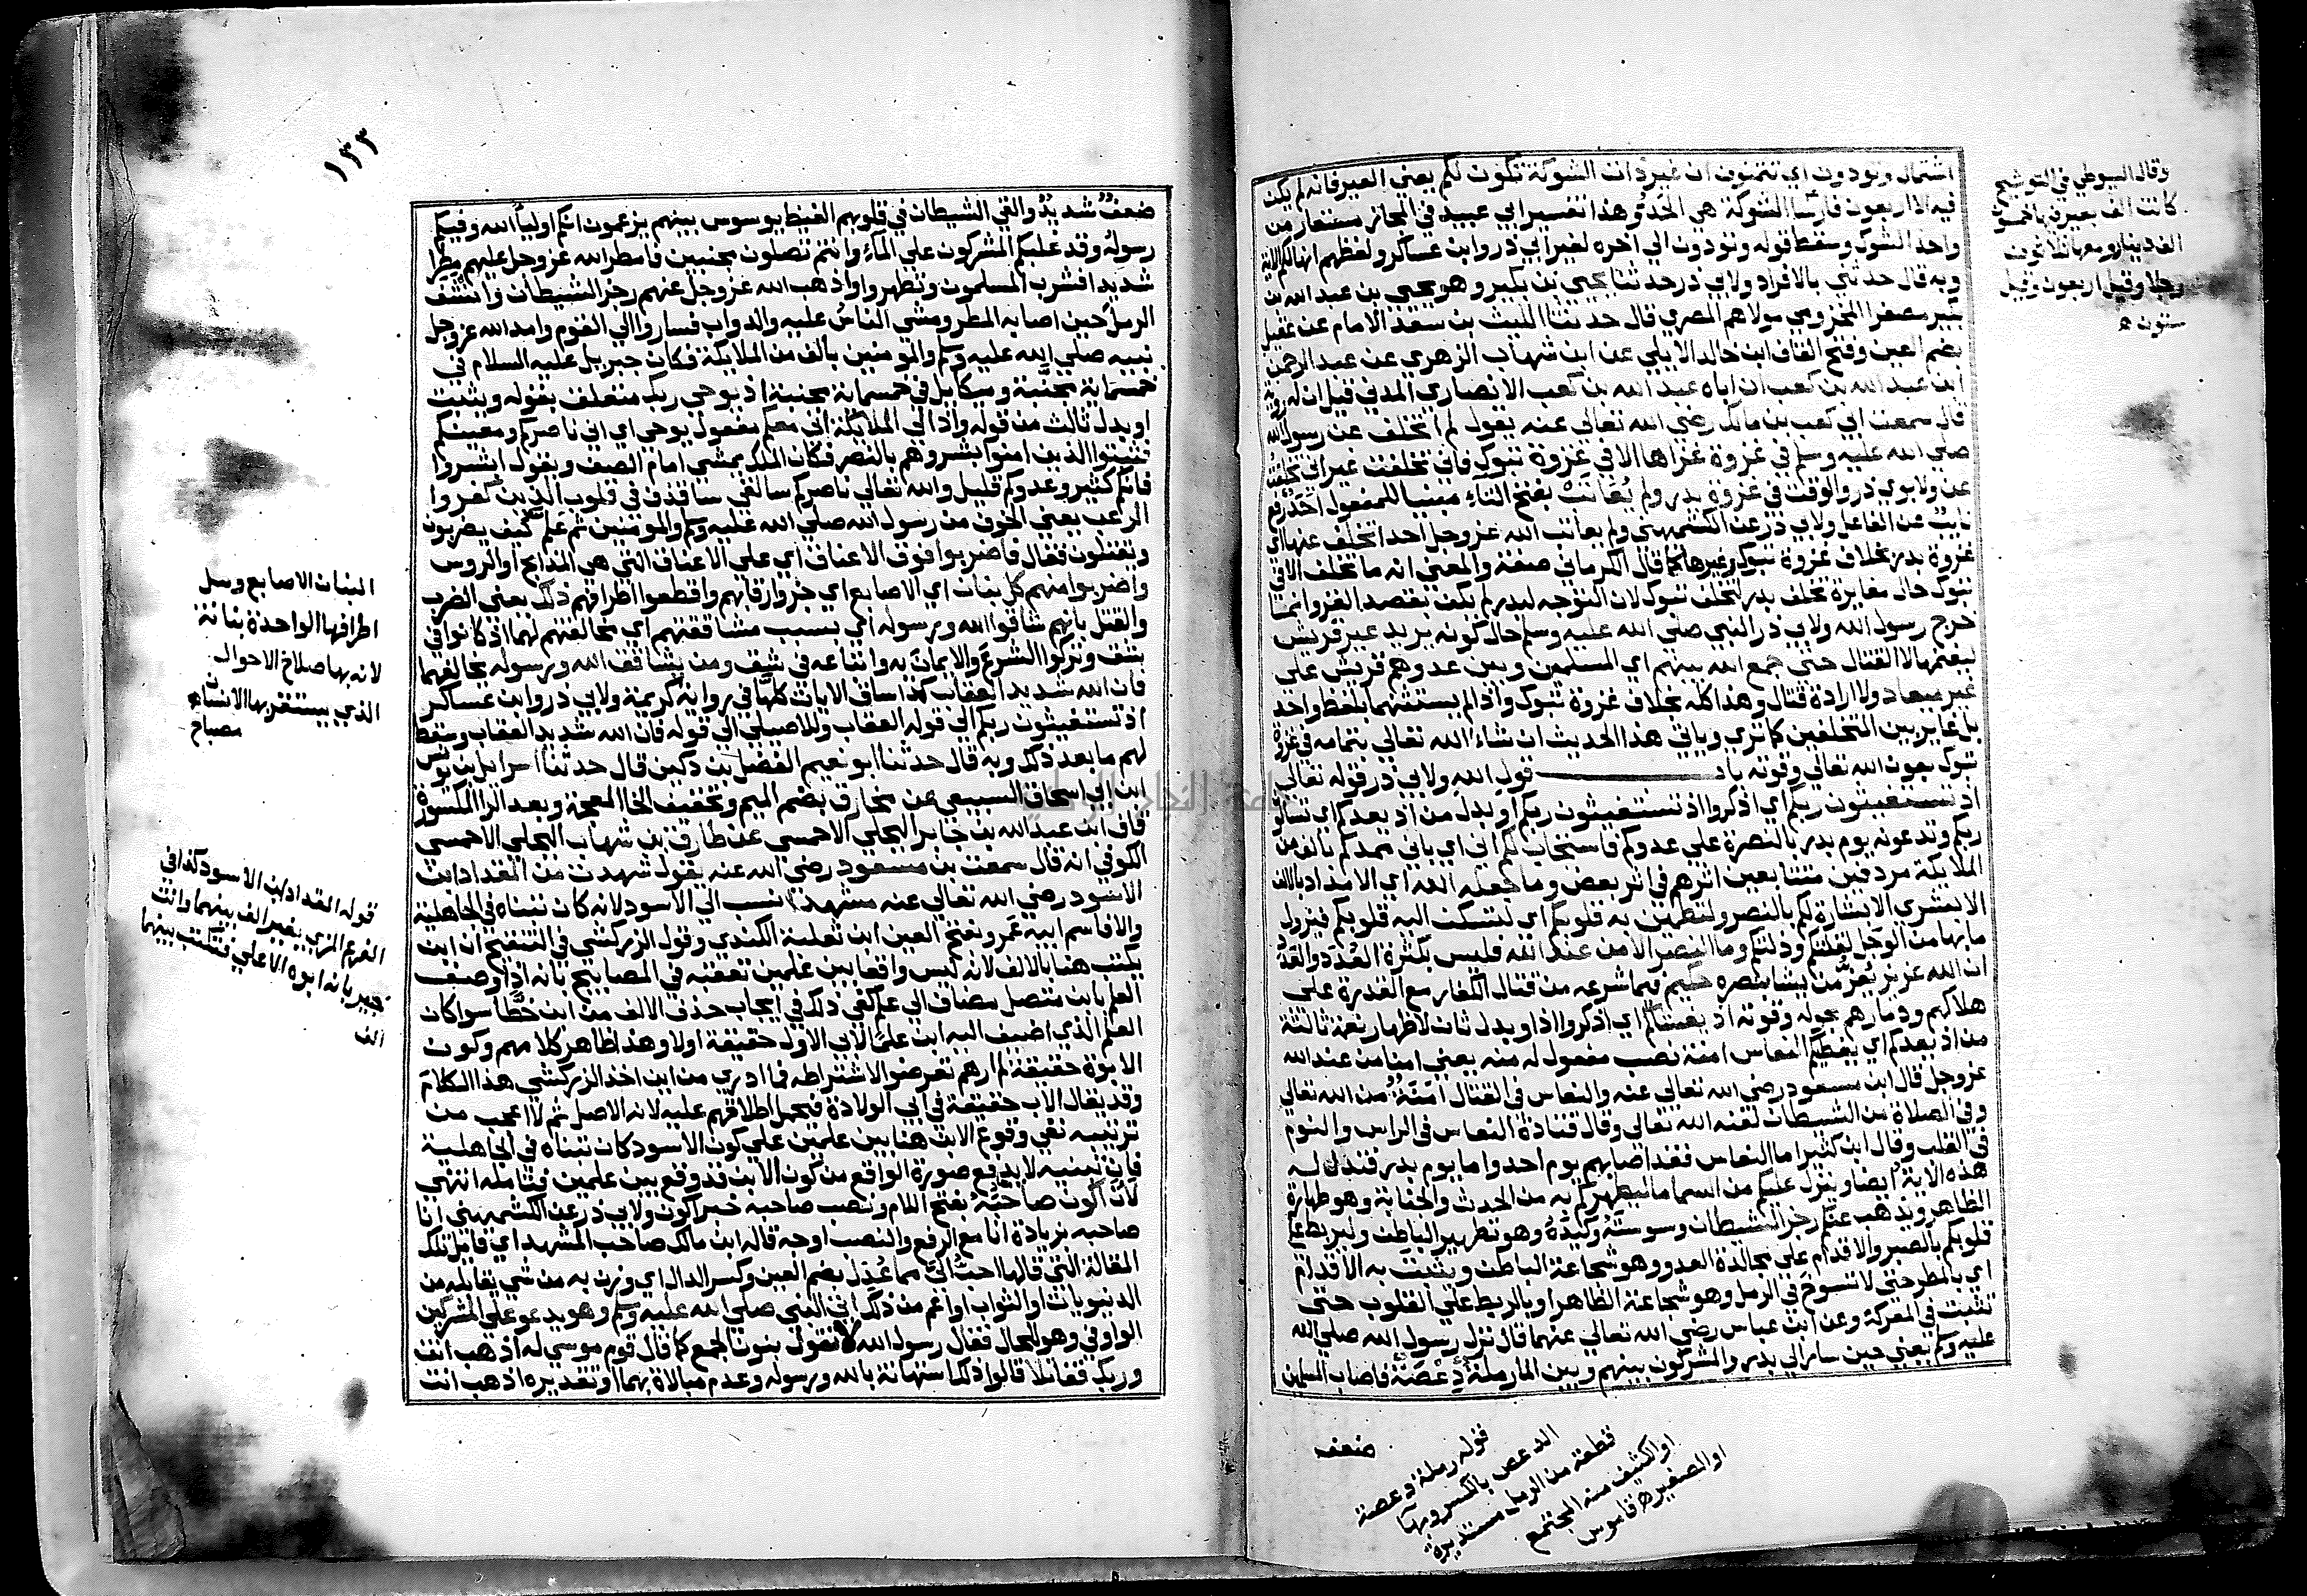 اشتمال وتودون اي تتمنون ان غير ذات الشوكة تكون لكم يعني العير فانه لم يكن
فيه الا اربعون فارسا الشوكة هي الحد وهذا تفسير ابي عبيدة في المجاز مستعار من
واحد الشوك وسقط قوله وتودون الي اخره لغير ابي ذر وابن عساكر ولفظهم انها لكم الاية
وبه قال حدثني بالافراد ولابي ذر حدثنا يحيي بن بكير وهو يحيي بن عبد الله بن
بكير مصغرا المخزومي مولاهم المصري قال حدثنا الليث بن سعد الامام عن عقيل
بضم العين وفتح القاف ابن خالد الايلي عن ابن شهاب الزهري عن عبد الرحمن
ابن عبد الله بن كعب ان اباه عبد الله بن كعب الانصاري المدني قيل ان له روية
قال سمعت ابي كعب بن مالك رضي الله تعالي عنه يقول لم اتخلف عن رسول الله
صلي الله عليه وسلم في غزوة غزاها الا في غزوة تبوك فاني تخلفت غير اني تخلفت
عن ولابوي ذر والوقت في غزوة بدر ولم يعاتب بفتح التاء مبنيا للمفعول احد رفع
نايب عن الفاعل ولابي ذر عن الكشميهني ولم يعاتب الله عز وجل احدا تخلف عنها اي
غزوة بدر بخلاف غزوة تبوك وغيرها كما قال الكرماني صفة والمعني انه ما تخلف الا في
تبوك حال مغايرة تخلف بدر لتخلف تبوك لان التوجه لبدر لم يكن بقصد الغزو انما
خرج رسول الله ولابي ذر النبي صلي الله عليه وسلم حال كونه يريد عير قريش
ليغنمها لا القتال حتي جمع الله بينهم اي المسلمين وبين عدوهم قريش علي
غير ميعاد ولا ارادة قتال وهذا كله بخلاف غزوة تبوك واذا لم يستثنهما بلفظ واحد
بل غاير بين التخلفين كما تري وياتي هذا الحديث ان شاء الله تعالي بتمامه في غزوة
تبوك بعون الله تعالي وقوته باب قول الله ولابي ذر قوله تعالي
اذ تستغيثون ربكم اي اذكروا اذ تستغيثون ربكم او بدل من اذ يعدكم اي تسالوا
ربكم وتدعونه يوم بدر بالنصرة علي عدوكم فاستجاب لكم اني اي باني ممدكم بالف من
الملايكة مردفين متتابعين اثرهم في اثر بعض وما جعله الله اي الامداد بالالف
الا بشري الا بشارة لكم بالنصر ولتطمين به قلوبكم اي لتسكن اليه قلوبكم فيزول
ما بها من الوجل لقلتكم وذلتكم وما النصر الا من عند الله فليس بكثرة العدد والعدد
ان الله عزيز يعز من يشا بنصره حكيم فيما شرعه من قتال الكفار مع القدرة علي
هلاكهم ودمارهم بحوله وقوته اذ يغشاكم اي اذكروا اذ او بدل ثان لاظهار نعمة ثالثة
من اذ يعدكم اي يغطيكم النعاس امنة نصب مفعول له منه يعني امنا من عند الله
عز وجل قال ابن مسعود رضي الله تعالي عنه والنعاس في القتال امنة من الله تعالي
وفي الصلاة من الشيطان لعنه الله تعالي وقال قتادة النعاس في الراس والنوم
في القلب وقال ابن كثير اما النعاس فقد اصابهم يوم احد واما يوم بدر فتدل له
هذه الاية ايضا وينزل عليكم من السما ما ليطهركم به من الحدث والجنابة وهو طهارة
الظاهر ويذهب عنكم رجز الشيطان وسوسته وكيده وهو تطهير الباطن وليربط علي
قلوبكم بالصبر والاقدام علي مجالدة العدو وهو شجاعة الباطن ويثبت به الاقدام
اي بالمطر حتي لا تسوخ في الرمل وهو شجاعة الظاهر او بالربط علي القلوب حتي
تثبت في المعركة وعن ابن عباس رضي الله تعالي عنهما قال نزل رسول الله صلي الله
عليه وسلم يعني حين سار الي بدر والمشركون بينهم وبين الما رملة دعصة فاصاب المسلمين
ضعف
وقال السيوطي في التوشيح
كانت الف بعير
الف دينار ومعها ثلاثون
رجلا وقيل اربعون وقيل
ستون ه
قوله رملة دعصة
الدعص بالكسر وبهآ
قطعة من الرمل مستديرة
او الكثيب منه المجتمع
او الصغير ه قاموس
١٣٣
ضعف شديد والقي الشيطان في قلوبهم الغيظ يوسوس بينهم يزعمون انكم اوليا الله وفيكم
رسوله وقد غلبكم المشركون علي الماء وانتم تصلون مجنبين فامطر الله عز وجل عليهم مطرا
شديدا فشرب المسلمون وتطهروا واذهب الله عز وجل عنهم رجز الشيطان وانشف
الرمل حين اصابه المطر ومشي الناس عليه والدواب فساروا الي القوم وامد الله عز وجل
نبيه صلي الله عليه وسلم والمومنين بالف من الملايكة فكان جبريل عليه السلام في
خمسماية مجنبة وميكايل في خمسماية مجنبة اذ يوحي ربك متعلق بقوله ويثبت
او بدل ثالث من قوله واذ الي الملايكة اني معكم مفعول يوحي اي اني ناصركم ومعينكم
فثبتوا الذين امنوا بشروهم بالنصر فكان الملك يمشي امام الصف ويقول ابشروا
فانكم كثير وعدوكم قليل والله تعالي ناصركم سالقي ساقذف في قلوب الذين كفروا
الرعب يعني الخوف من رسول الله صلي الله عليه وسلم والمومنين ثم علمهم كيف يضربون
ويقتلون فقال فاضربوا فوق الاعناق اي علي الاعناق التي هي المذابح او الروس
واضربوا منهم كل بنان اي الاصابع اي جزوا رقابهم واقطعوا اطرافهم ذلك يعني الضرب
والقتل بانهم شاقوا الله ورسوله اي بسبب مشاققتهم اي مخالفتهم لهما اذ كانوا في
شق وتركوا الشرع والايمان به واتباعه في شق ومن يشاقق الله ورسوله يخالفهما
فان الله شديد العقاب كذا ساق الايات كلها في رواية كريمة ولابي ذر وابن عساكر
اذ تستغيثون ربكم الي قوله العقاب وللاصيلي الي قوله فان الله شديد العقاب وسقط
لهم ما بعد ذلك وبه قال حدثنا ابو نعيم الفضل بن دكين قال حدثنا اسرايل بن يونس
ابن ابي اسحاق السبيعي عن مخارق بضم الميم وتخفيف الخا المعجمة وبعد الرا المكسورة
قاف ابن عبد الله بن جابر البجلي الاحمسي عن طارق بن شهاب البجلي الاحمسي
الكوفي انه قال سمعت بن مسعود رضي الله عنه يقول شهدت من المقداد ابن
الاسود رضي الله تعالي عنه مشهدا نسب الي الاسود لانه كان تبناه في الجاهلية
والا فاسم ابيه عمرو بفتح العين ابن ثعلبة الكندي وقول الزركشي في التنقيح ان ابن
يكتب هنا بالالف لانه ليس واقعا بين علمين تعقبه في المصابيح بانه اذا وصف
العلم بابن متصل مضاف الي علم كفي ذلك في ايجاب حذف الالف من ابن خطا سوا كان
العلم الذي اضيف اليه ابن علما لابي الاول حقيقة اولا وهذا ظاهر كلامهم وكون
الابوة حقيقة لم ارهم تعرضوا لاشتراطه فما ادري من اين اخذ الزركشي هذا الكلام
وقد يقال الاب حقيقة في ابي الولادة فيحمل اطلاقهم عليه لانه الاصل ثم لا اعجب من
ترتيبه نفي وقوع الابن هنا بين علمين علي كون الاسود كان تبناه في الجاهلية
فان تبنيه لا يدفع صورة الواقع من كون الابن قد وقع بين علمين فتامله انتهي
لان اكون صاحبه بفتح اللام ونصب صاحبه خبر اكون ولابي ذر عن الكشميهني انا
صاحبه بزيادة انا مع الرفع والنصب اوجه قاله ابن مالك صاحب المشهد اي قايل تلك
المقالة التي قالها احب الي مما عدل بضم العين وكسر الدال اي وزن به من شي يقابله من
الدنيويات او الثواب او اعم من ذلك اتي النبي صلي الله عليه وسلم وهو يدعو علي المشركين
الواو في وهو للحال فقال رسول الله لا نقول بنون الجمع كما قال قوم موسي له اذهب انت
وربك فقاتلا قالوا ذلك استهانة بالله ورسوله وعدم مبالاة بهما او تقديره اذهب انت
البنان الاصابع وسل
اطرافها الواحدة بنانة
لانه بها صلاح الاحوال
الذي يستقر بها الانسان
مصباح
قوله المقداد ابن الاسود كذا في
الفرع المزي بغير الف بينهما وانت
خبير بانه ابوه الاعلي فتكتب بينهما
الف